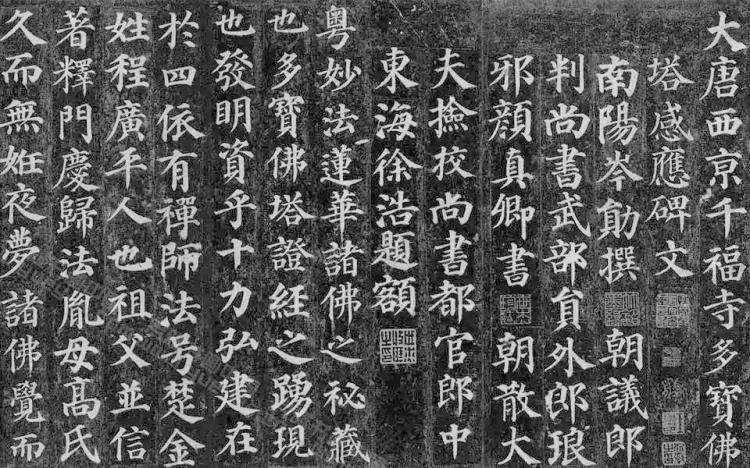 大唐西亰千福寺多寶佛
塔感應碑文
南陽岑勛撰 朝議郎
判尚書武部員外郎琅
邪顏真卿書 朝散大
夫撿挍尚書都官郎中
東海徐浩題額
粵妙法蓮華諸佛之秘藏
也多寶佛塔證經之踴現
也發明資乎十力弘建在
於四依有禪師法号楚金
姓程廣平人也祖父並信
著釋門慶歸法胤母髙氏
久而無姙夜夢諸佛覺而